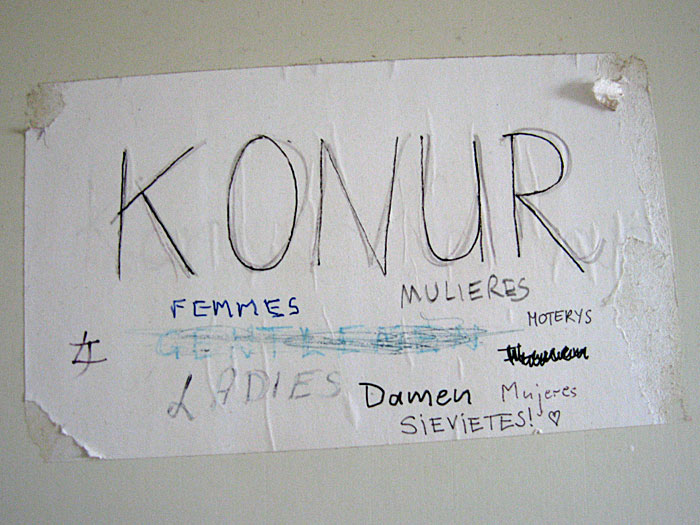 KONUR
FEMMES MULIERES
GENTLEMEN MOTERYS
LADIES Damen Mujeres
SIEVIETES! ♡